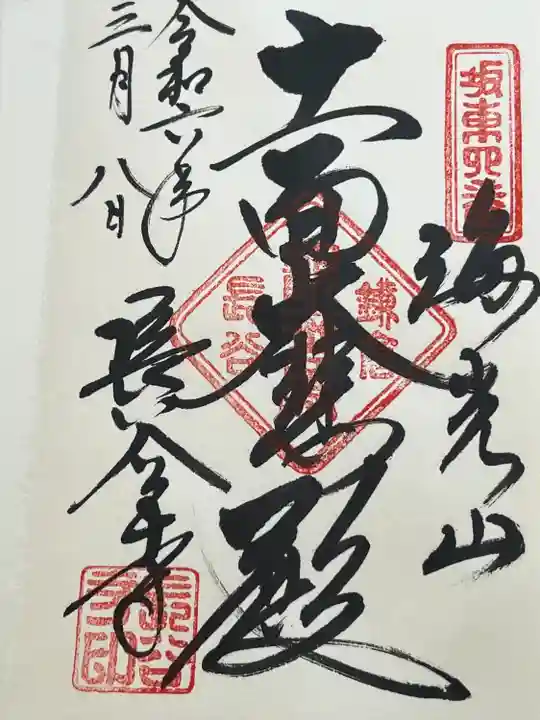 坂東四番
海光山
十一面大悲殿
鎌倉
長谷
長谷寺
令和六年
三月八日
長谷寺印